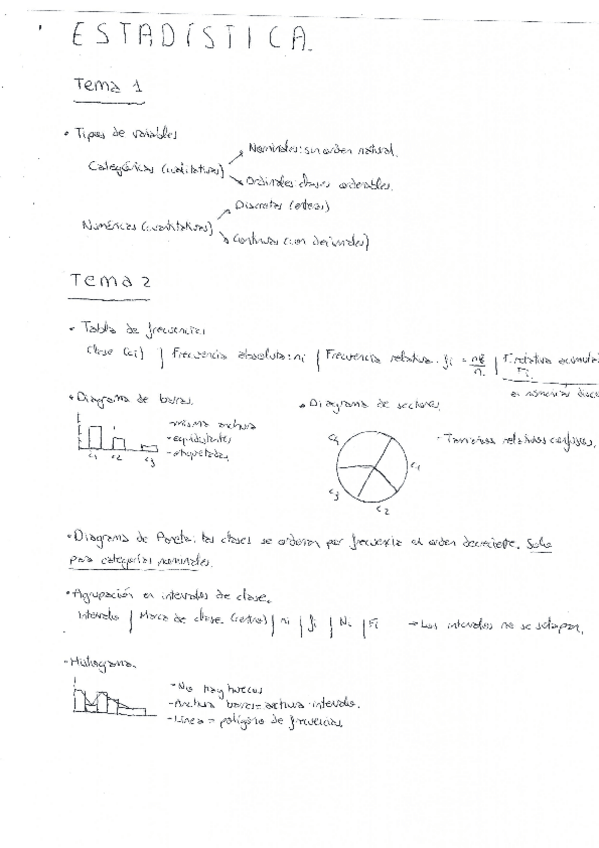 ESTADÍSTICA.
Tema 1
• Tipos de variables
Nominales: sin orden natural.
Categóricas (cualitativas)
Ordinales clases ordenables.
Discretas (enteros)
Numéricas (cuantitativas)
Continuas (con decimales)
Tema 2
• Tabla de frecuencias
Clase (ci) | Frecuencia absoluta: ni | Frecuencia relativa. fi = ni/n. | F. relativa acumula
Fi.
• Diagrama de barras.
• Diagrama de sectores.
- misma anchura
- equidistantes
- etiquetadas
c1 c2 c3
· Tamaños relativos confusos.
c4
c1
c3
c2
• Diagrama de Pareto: las clases se ordenan por frecuencia en orden decreciente. Solo
para categorías nominales.
• Agrupación en intervalos de clase.
Intervalo | Marca de clase (centro) | ni | fi | Ni | Fi → Los intervalos no se solapan.
- Histograma.
- No hay huecos
- Anchura barras = anchura intervalo.
- Línea = polígono de frecuencias